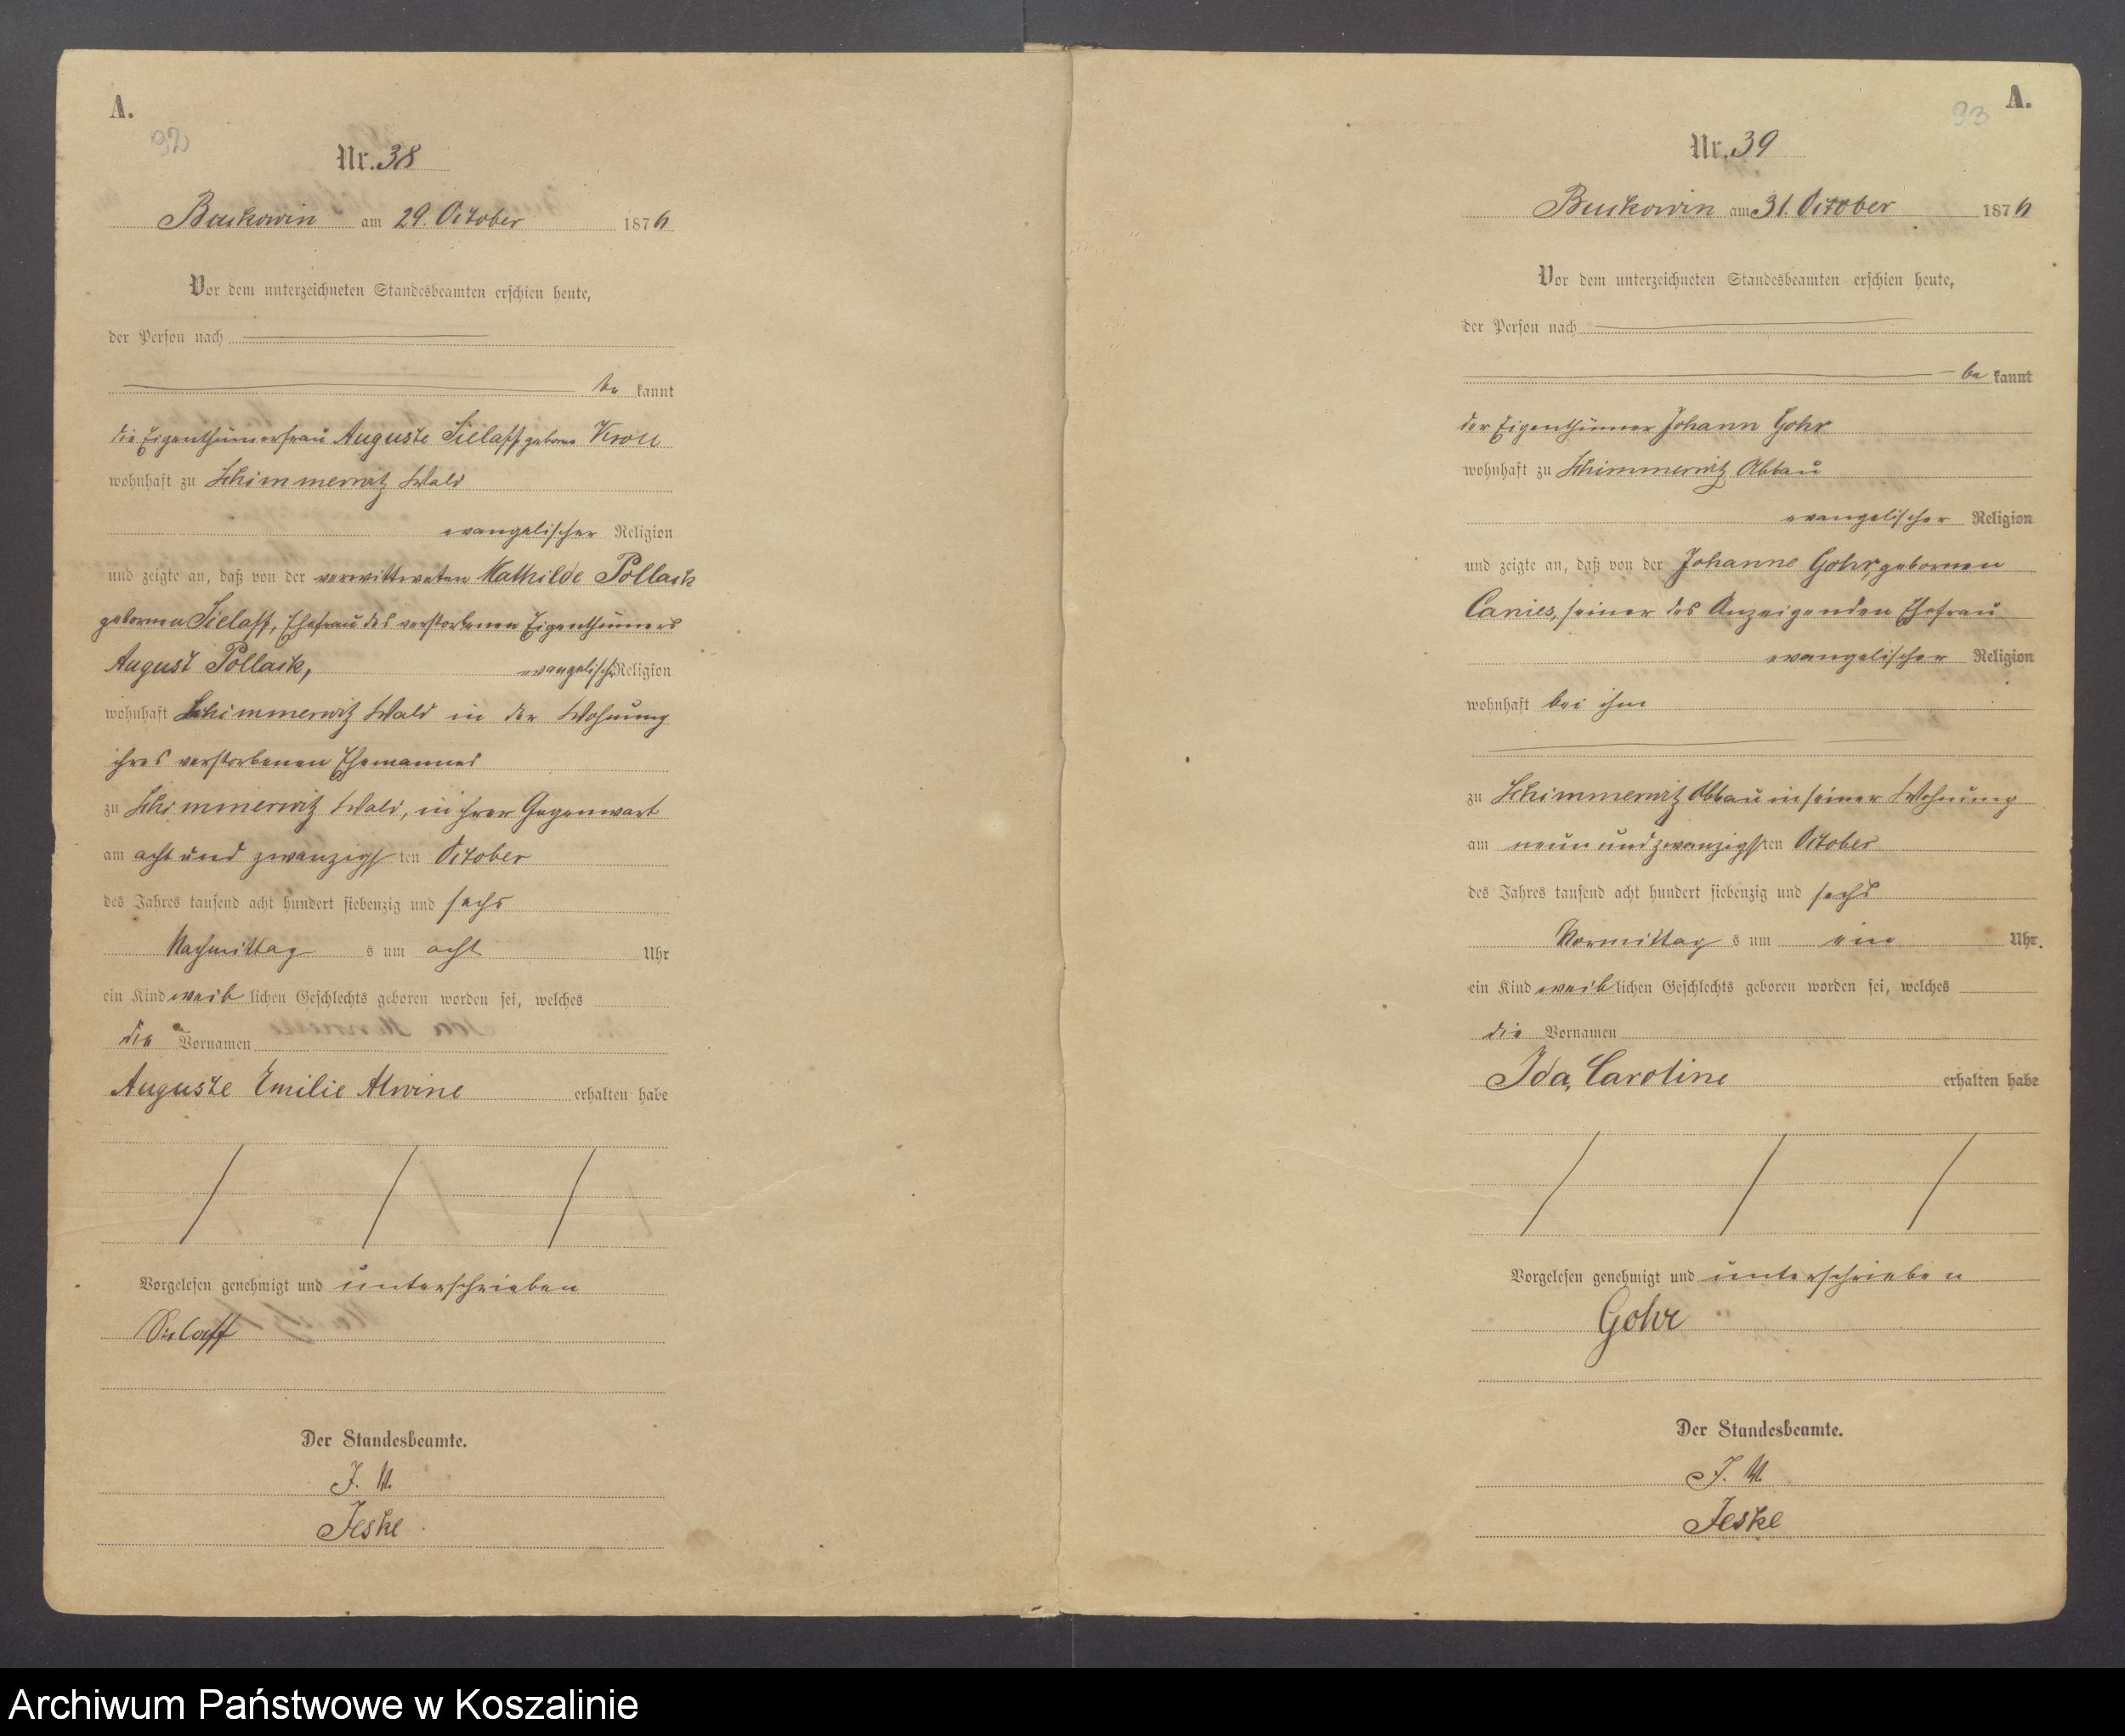 A.
92
Nr. 38
Buckowin am 29. October 1876
Vor dem unterzeichneten Standesbeamten erschien heute,
der Person nach
be kannt
die Eigenthümerfrau Auguste Sielaff geborne
wohnhaft zu Schimmerwitz Wald
evangelischer Religion
und zeigte an, daß von der verwittweten Mathilde Pollack
gebornen Sielaff, Ehefrau des verstorbenen Eigenthümers
August Pollack, evangelischer Religion
wohnhaft Schimmerwitz Wald in der Wohnung
ihres verstorbenen Ehemannes
zu Schimmerwitz Wald, in ihrer Gegenwart
am acht und zwanzigsten October
des Jahres tausend acht hundert siebenzig und sechs
Nachmittag s um acht Uhr
ein Kind weiblichen Geschlechts geboren worden sei, welches
die Vornamen
Auguste Emilie Alwine erhalten habe
Vorgelesen genehmigt und unterschrieben
Sielaff
Der Standesbeamte.
J. V.
Jeske
A.
93
Nr. 39
Buckowin am 31. October 1876
Vor dem unterzeichneten Standesbeamten erschien heute,
der Person nach
be kannt
der Eigenthümer Johann Gohr
wohnhaft zu Schimmerwitz Abbau
evangelischer Religion
und zeigte an, daß von der Johanne Gohr, gebornen
Canies, seiner des Anzeigenden Ehefrau
evangelischer Religion
wohnhaft bei ihm
zu Schimmerwitz Abbau in seiner Wohnung
am neun und zwanzigsten October
des Jahres tausend acht hundert siebenzig und sechs
Vormittag s um ein Uhr.
ein Kind weiblichen Geschlechts geboren worden sei, welches
die Vornamen
Ida, Caroline erhalten habe
Vorgelesen genehmigt und unterschrieben
Gohr
Der Standesbeamte.
J. V.
Jeske
Archiwum Państwowe w Koszalinie